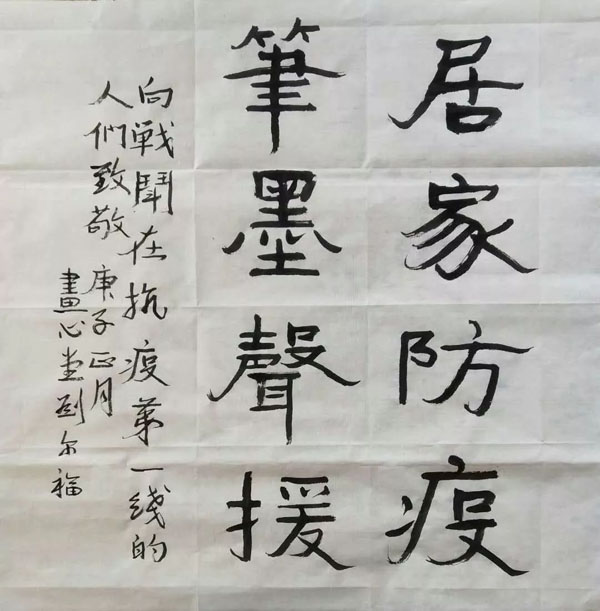 居家防疫
筆墨聲援
向戰鬪在抗疫第一线的
人们致敬 庚子正月
畫心堂刘尔福